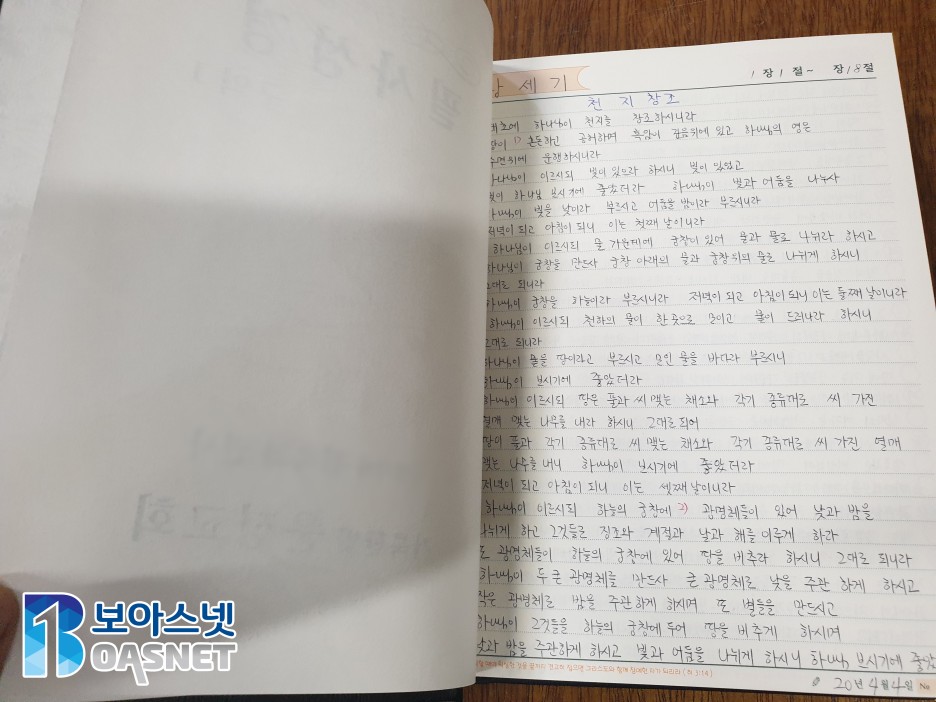 성경
창세기
1장 1절~ 장 18절
천지창조
태초에 하나님이 천지를 창조하시니라
땅이 1) 혼돈하고 공허하며 흑암이 깊음위에 있고 하나님의 영은
수면위에 운행하시니라
하나님이 이르시되 빛이 있으라 하시니 빛이 있었고
빛이 하나님 보시기에 좋았더라 하나님이 빛과 어둠을 나누사
하나님이 빛을 낮이라 부르시고 어둠을 밤이라 부르시니라
저녁이 되고 아침이 되니 이는 첫째 날이니라
하나님이 이르시되 물 가운데에 궁창이 있어 물과 물로 나뉘라 하시고
하나님이 궁창을 만드사 궁창 아래의 물과 궁창 위의 물로 나뉘게 하시니
그대로 되니라
하나님이 궁창을 하늘이라 부르시니라 저녁이 되고 아침이 되니 이는 둘째 날이니라
하나님이 이르시되 천하의 물이 한 곳으로 모이고 뭍이 드러나라 하시니
그대로 되니라
하나님이 뭍을 땅이라고 부르시고 모인 물을 바다라 부르시니
하나님이 보시기에 좋았더라
하나님이 이르시되 땅은 풀과 씨 맺는 채소와 각기 종류대로 씨 가진
열매 맺는 나무를 내라 하시니 그대로 되어
땅이 풀과 각기 종류대로 씨 맺는 채소와 각기 종류대로 씨 가진 열매
맺는 나무를 내니 하나님이 보시기에 좋았더라
저녁이 되고 아침이 되니 이는 셋째 날이니라
하나님이 이르시되 하늘의 궁창에 2) 광명체들이 있어 낮과 밤을
나뉘게 하고 그것들로 징조와 계절과 날과 해를 이루게 하라
또 광명체들이 하늘의 궁창에 있어 땅을 비추라 하시니 그대로 되니라
하나님이 두 큰 광명체를 만드사 큰 광명체로 낮을 주관 하게 하시고
작은 광명체로 밤을 주관하게 하시며 또 별들을 만드시고
하나님이 그것들을 하늘의 궁창에 두어 땅을 비추게 하시며
낮과 밤을 주관하게 하시고 빛과 어둠을 나뉘게 하시니 하나님 보시기에 좋았
20년 4월 4일 No
보아스넷
BOASNET